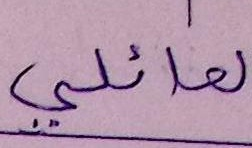 لعائلي